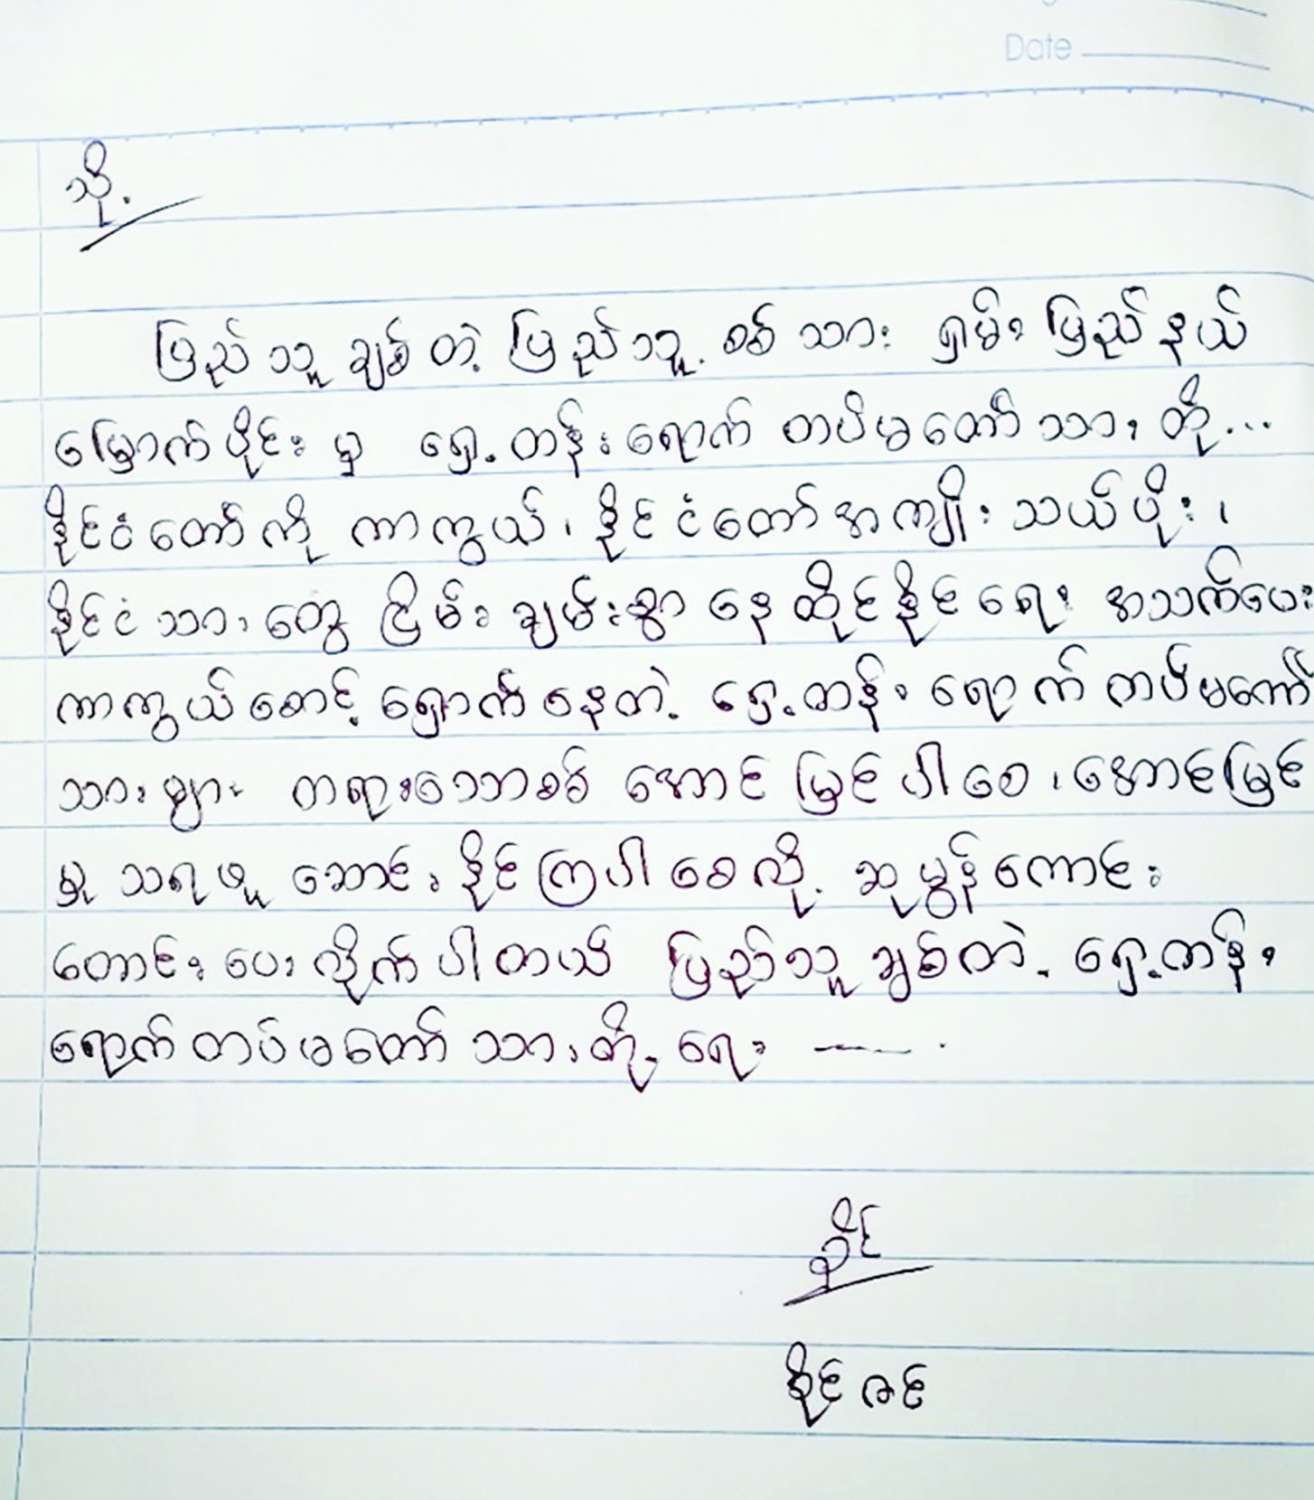 Date
သို့
ပြည်သူချစ်တဲ့ ပြည်သူ့ စစ်သား ရှမ်းပြည်နယ်
မြောက်ပိုင်း မှ ရှေ့တန်းရောက် တပ်မတော်သား တို့...
နိုင်ငံတော်ကို ကာကွယ်၊ နိုင်ငံတော်အကျိုး သယ်ပိုး၊
နိုင်ငံသားတွေ ငြိမ်းချမ်းစွာ နေထိုင်နိုင်ရေး အသက်ပေး
ကာကွယ်စောင့်ရှောက်နေတဲ့ ရှေ့တန်းရောက် တပ်မတော်
သားများ တရားသောစစ် အောင်မြင်ပါစေ၊ အောင်မြင်
မှု သရဖူ ဆောင်းနိုင်ကြပါစေလို့ ဆုမွန်ကောင်း
တောင်းပေးလိုက်ပါတယ် ပြည်သူချစ်တဲ့ ရှေ့တန်း
ရောက် တပ်မတော်သားတို့ ရေး —— .
ခိုင်
ခိုင်ဇင်